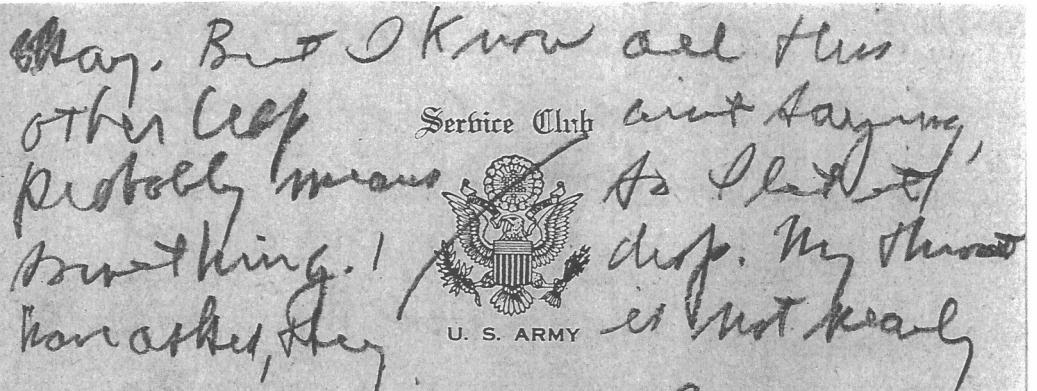 But I know all this
other crap
probably means
something. I
have asked, they
Service Club
U. S. ARMY
aint saying,
so I let it
drop. My throat
is not nearly